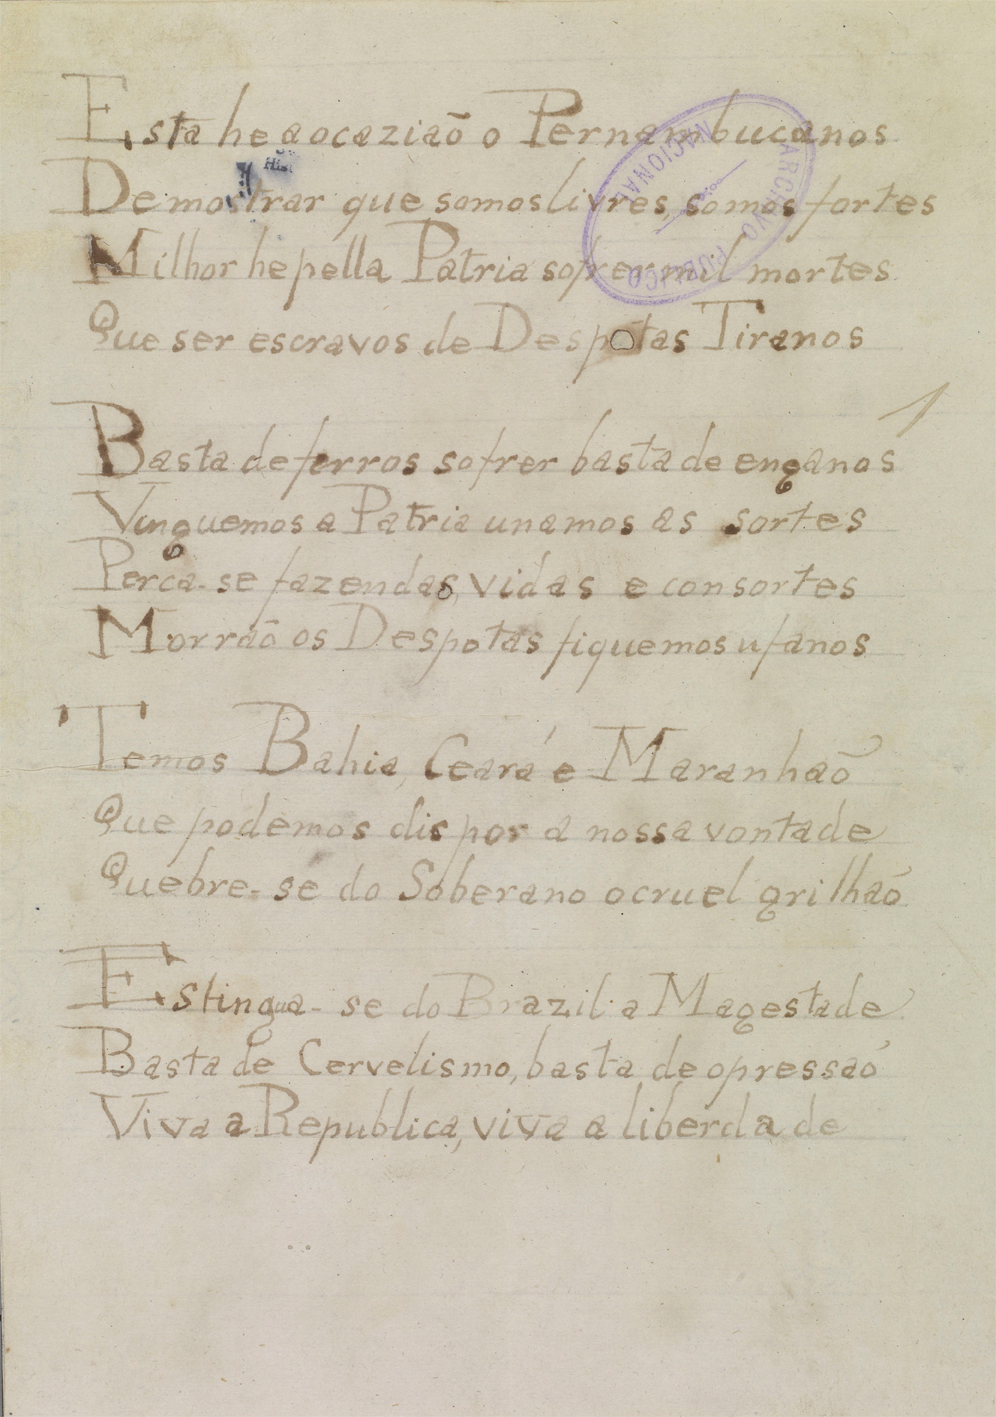 Esta he a ocaziaõ o Pernambucanos
Demostrar que somos livres, somos fortes
Milhor he pella Patria sofrer mil mortes
Que ser escravos de Despotas Tiranos
1
Basta de ferros sofrer basta de enganos
Vinguemos a Patria unamos as sortes
Perca-se fazendas, vidas e consortes
Morraõ os Despotas fiquemos ufanos
Temos Bahia, Ceará e Maranhaõ
Que podemos dispor a nossa vontade
Quebre-se do Soberano o cruel grilhaõ
Estingua-se do Brazil a Magestade
Basta de Cervelismo, basta de opressaõ
Viva a Republica, viva a liberdade
ARCHIVO PUBLICO NACIONAL